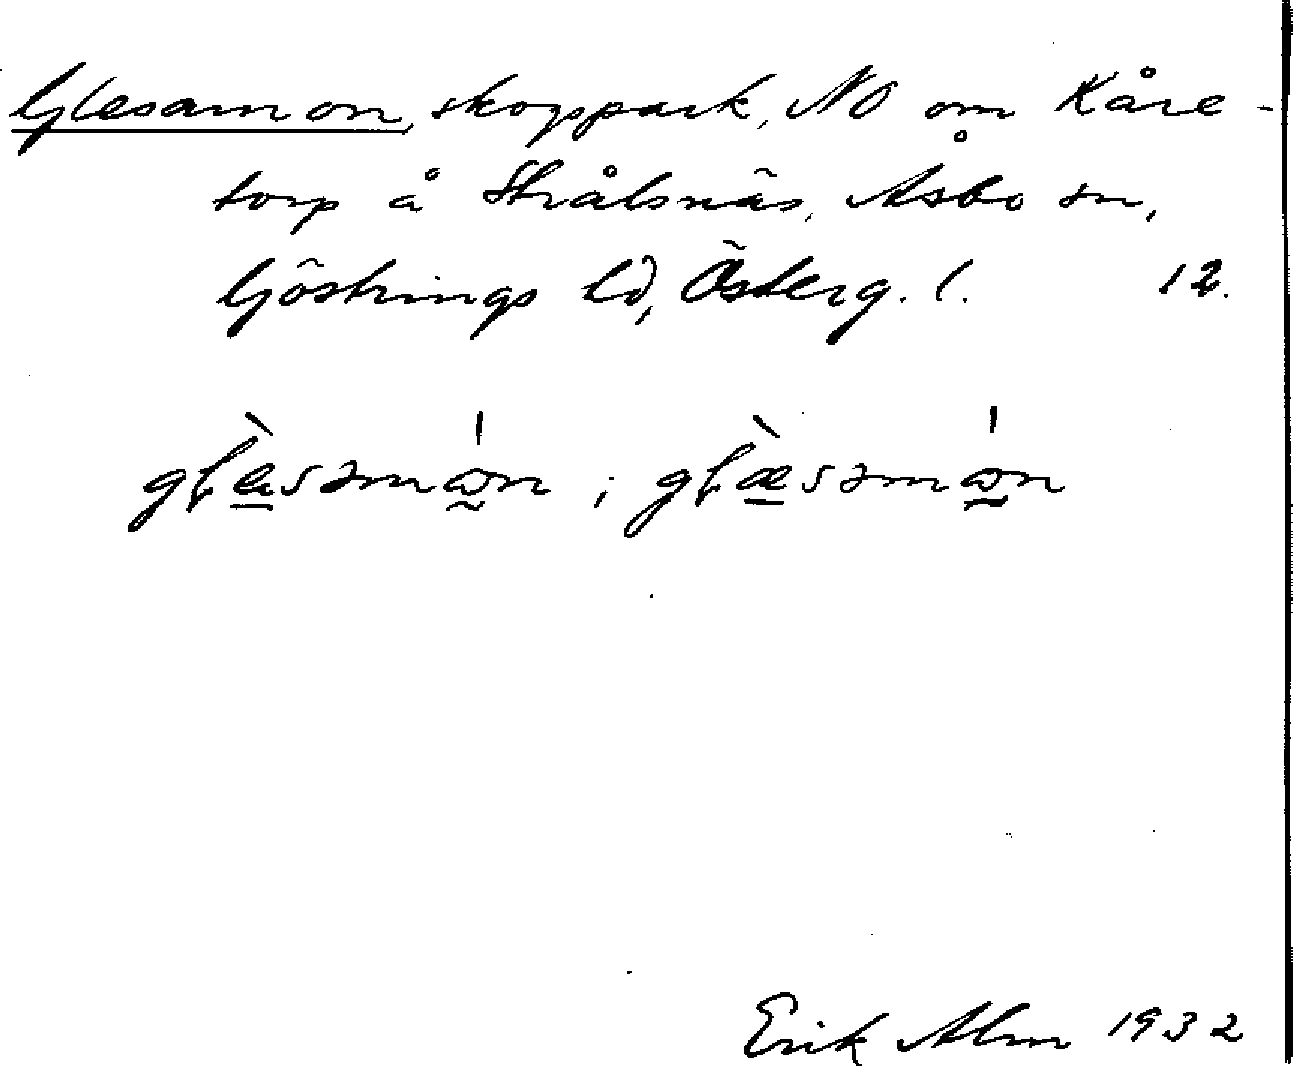 Glesamon, skogspark, NO om Kåre-
torp å Strålsnäs, Åsbo sn,
Göstrings hd, Österg. l. 12.
glæ̀səmɷ́n ; glæ̀səmɷ́n
Erik Alm 1932